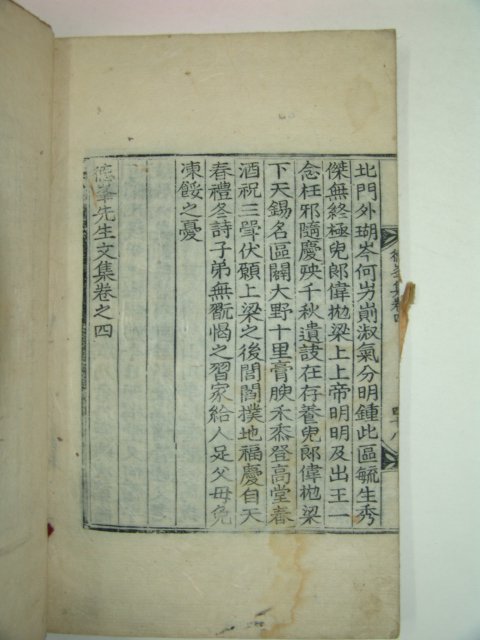 北門外瑚岑何岃崱淑氣分明鍾此區毓生秀
傑無終極兒郞偉抛梁上上帝明明及出王一
念枉邪隨慶殃千秋遺訓在存養兒郞偉抛梁
下天錫名區闢大野十里膏腴禾黍登高堂春
酒祝三聲伏願上梁之後閭閻撲地福慶自天
春禮冬詩子弟無翫愒之習家給人足父母免
凍餒之憂
德峯先生文集卷之四